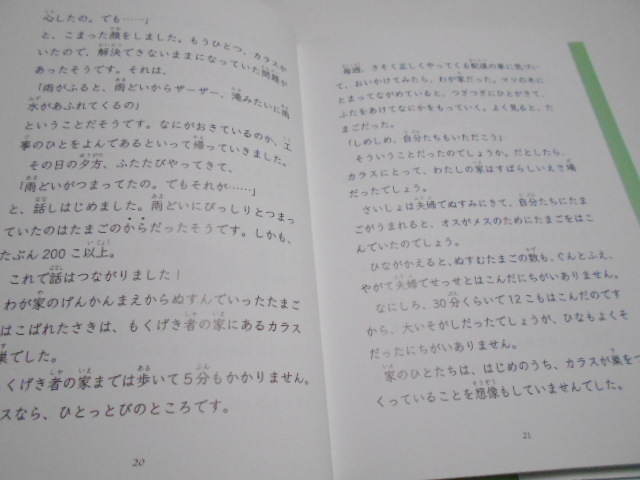 心したの。でも……」
と、こまった顔をしました。もうひとつ、カラスが
いたので、解決できないままになっていた問題が
あったそうです。それは、
「雨がふると、雨どいからザーザー、滝みたいに雨
水があふれてくるの」
ということだそうです。なにがおきているのか、工
事のひとをよんであるといって帰っていきました。
その日の夕方、ふたたびやってきて、
「雨どいがつまってたの。でもそれが……」
と、話しはじめました。雨どいにびっしりとつまっ
ていたのはたまごのからだったそうです。しかも、
たぶん200こ以上。
これで話はつながりました！
わが家のげんかんまえからぬすんでいったたまご
はこばれたさきは、もくげき者の家にあるカラス
巣でした。
くげき者の家までは歩いて5分もかかりません。
スなら、ひとっとびのところです。
20
毎週、さそく正しくやってくる配達の車に気づい
て、おいかけてみたら、わが家だった。マツの木に
とまってながめていると、つぎつぎにひとがきて、
ふたをあけてなにかをもっていく。よく見ると、た
まごだった。
「しめしめ、自分たちもいただこう」
そういうことだったのでしょうか。だとしたら、
カラスにとって、わたしの家はすばらしいえさ場
だったでしょう。
さいしょは夫婦でぬすみにきて、自分たちにたま
ごがうまれると、オスがメスのためにたまごをはこ
んでいたのでしょう。
ひながかえると、ぬすむたまごの数も、ぐんとふえ、
やがて夫婦でせっせとはこんだにちがいありません。
なにしろ、30分くらいで12こもはこんだのです
から、大いそがしだったでしょうが、ひなもよくそ
だったにちがいありません。
家のひとたちは、はじめのうち、カラスが巣をつ
くっていることを想像もしていませんでした。
21